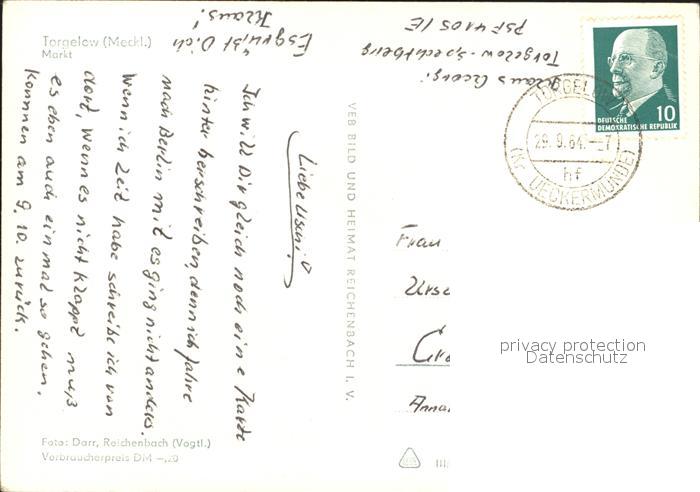 Torgelow (Meckl.)
Markt
Liebe Uschi!
Ich will Dir gleich noch eine Karte
hinterherschreiben, denn ich fahre
nach Berlin mit es ging nicht anders.
Wenn ich Zeit habe schreibe ich von
dort, wenn es nicht klappt muß
es eben auch einmal so gehen.
Kommen am 9. 10. zurück.
Es grüßt Dich
Klaus!
Foto: Darr, Reichenbach (Vogtl.)
Verbraucherpreis DM –,20
VEB BILD UND HEIMAT REICHENBACH I. V.
Klaus Georgi
Torgelow-Spechtberg
PSF 4105/E
DEUTSCHE
DEMOKRATISCHE REPUBLIK
10
TORGELOW
29.9.64.–7
hf
(Kr UECKERMÜNDE)
Frau
Urs
Anna
privacy protection
Datenschutz